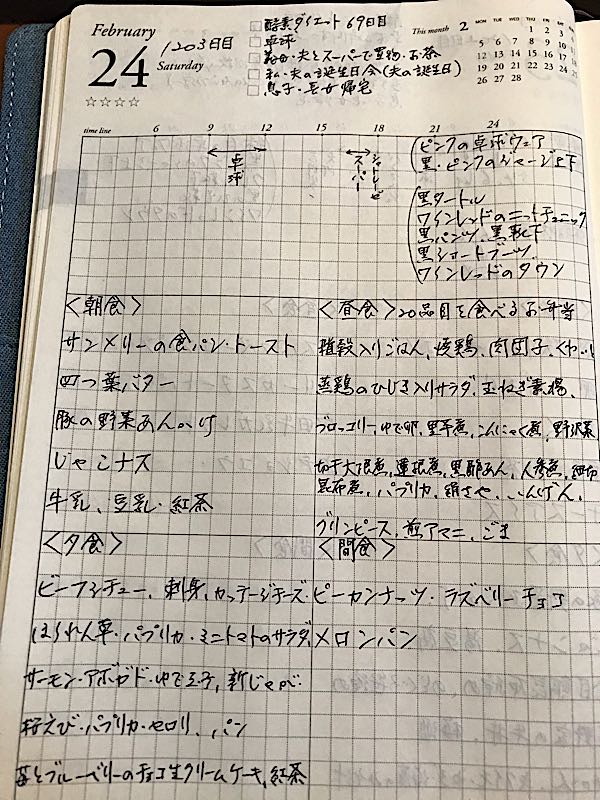 February
24
Saturday
1203日目
☆☆☆☆
□酵素ダイエット 69日目
□卓球
□義母・夫とスーパーで買物・お茶
□私・夫の誕生日会(夫の誕生日)
□息子・長女帰宅
This month 2
MON TUE WED THU FRI SAT SUN
1 2 3 4
5 6 7 8 9 10 11
12 13 14 15 16 17 18
19 20 21 22 23 24 25
26 27 28
time line 6 9 12 15 18 21 24
卓球
スーパー
シャトレーゼ
ピンクの卓球ウェア
黒・ピンクのジャージ上下
黒タートル
ワインレッドのニットチュニック
黒パンツ、黒靴下
黒ショートブーツ
ワインレッドのダウン
<朝食>
サンメリーの食パン・トースト
四つ葉バター
豚の野菜あんかけ
じゃこナス
牛乳、豆乳・紅茶
<昼食>20品目を食べるお弁当
雑穀入りごはん、焼鶏、肉団子、くわい
蒸鶏のひじき入りサラダ、玉ねぎ素揚、
ブロッコリー、ゆで卵、里芋煮、こんにゃく煮、野沢菜
切干大根煮、蓮根煮、黒酢あん、人参煮、細切
昆布煮、パプリカ、絹さや、いんげん、
グリンピース、煎アマニ、ごま
<夕食>
ビーフシチュー、刺身、カッテージチーズ・
ほうれん草・パプリカ・ミニトマトのサラダ、
サーモン・アボガド・ゆで玉子、新じゃが・
桜えび・パプリカ・セロリ、パン
苺とブルーベリーのチョコ生クリームケーキ、紅茶
<間食>
ピーカンナッツ・ラズベリーチョコ
メロンパン